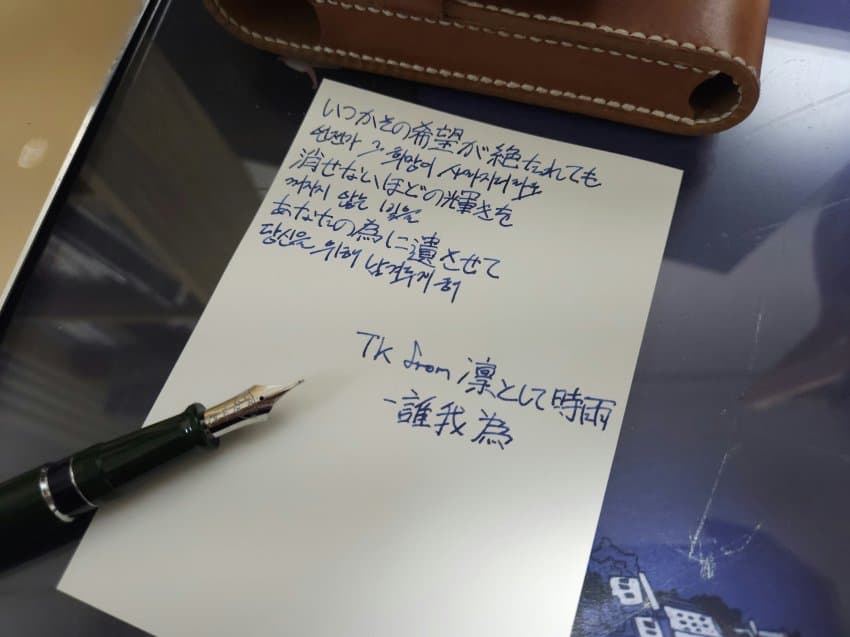 いつかその希望が絶たれても
언젠가 그 희망이 사라지더라도
消せないほどの輝きを
꺼지지 않는 빛을
あなたの為に遺させて
당신을 위해 남겨두게 해
TK from 凛として時雨
-誰我為